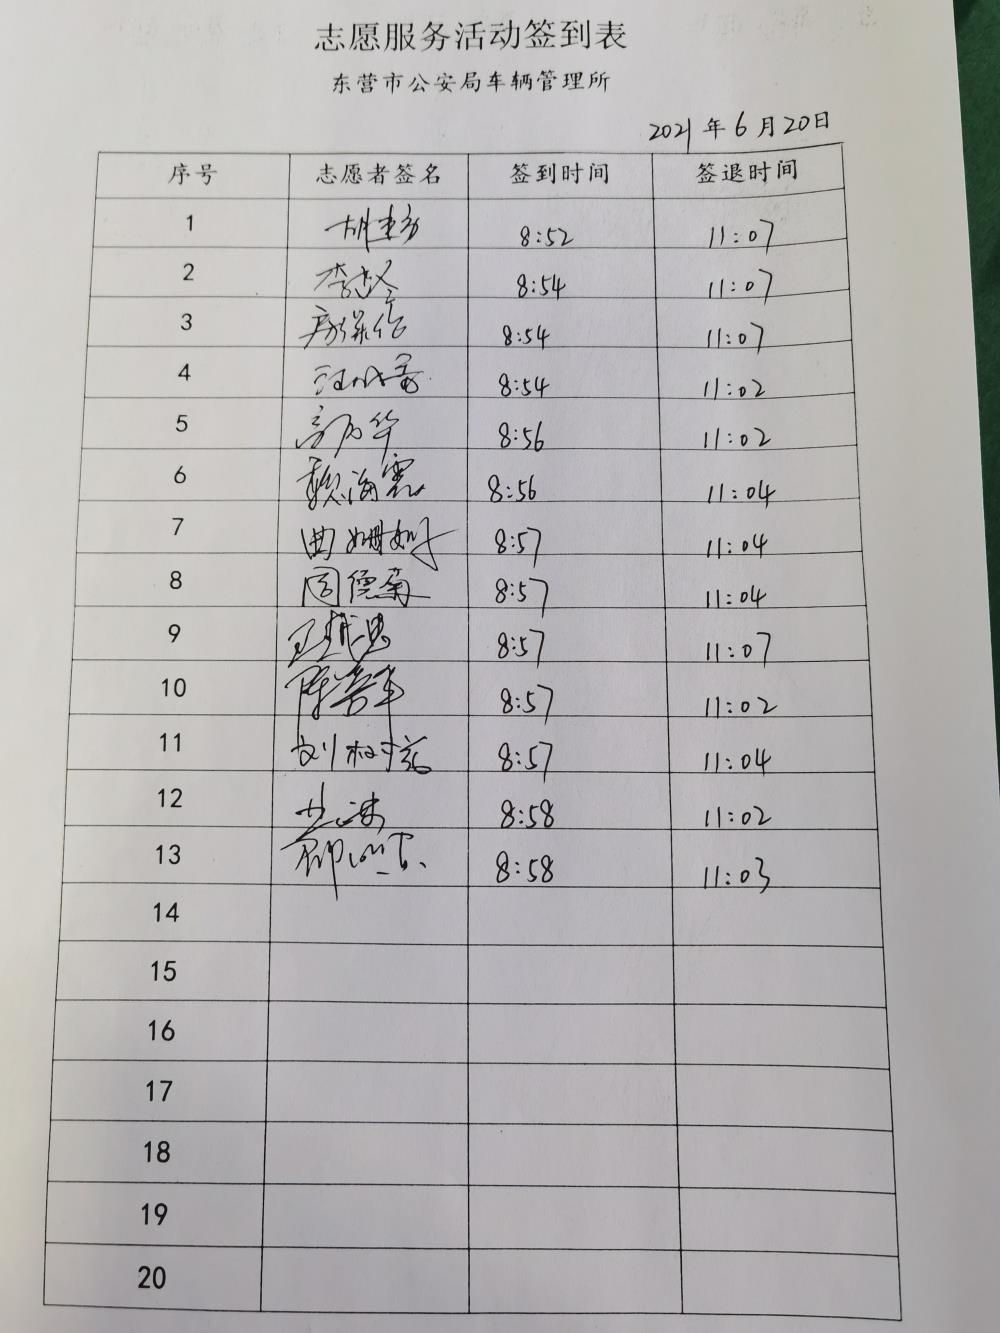 志愿服务活动签到表
东营市公安局车辆管理所
2021年6月20日
序号 志愿者签名 签到时间 签退时间
1 8:52 11:07
2 8:54 11:07
3 8:54 11:07
4 8:54 11:02
5 8:56 11:02
6 8:56 11:04
7 曲姗姗 8:57 11:04
8 周德菊 8:57 11:04
9 8:57 11:07
10 8:57 11:02
11 8:57 11:04
12 8:58 11:02
13 8:58 11:03
14
15
16
17
18
19
20